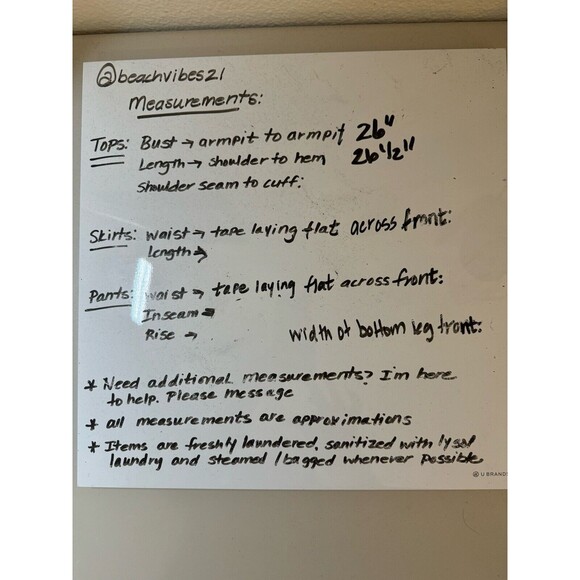 @beachvibes21
Measurements:
Tops: Bust → armpit to armpit 26"
Length → shoulder to hem 26 1/2"
Shoulder seam to cuff:
Skirts: waist → tape laying flat across front:
length →
Pants: waist → tape laying flat across front:
Inseam →
Rise → width of bottom leg front:
* Need additional measurements? I'm here
to help. Please message
* all measurements are approximations
* Items are freshly laundered, sanitized with lysol
laundry and steamed / bagged whenever possible
U BRANDS